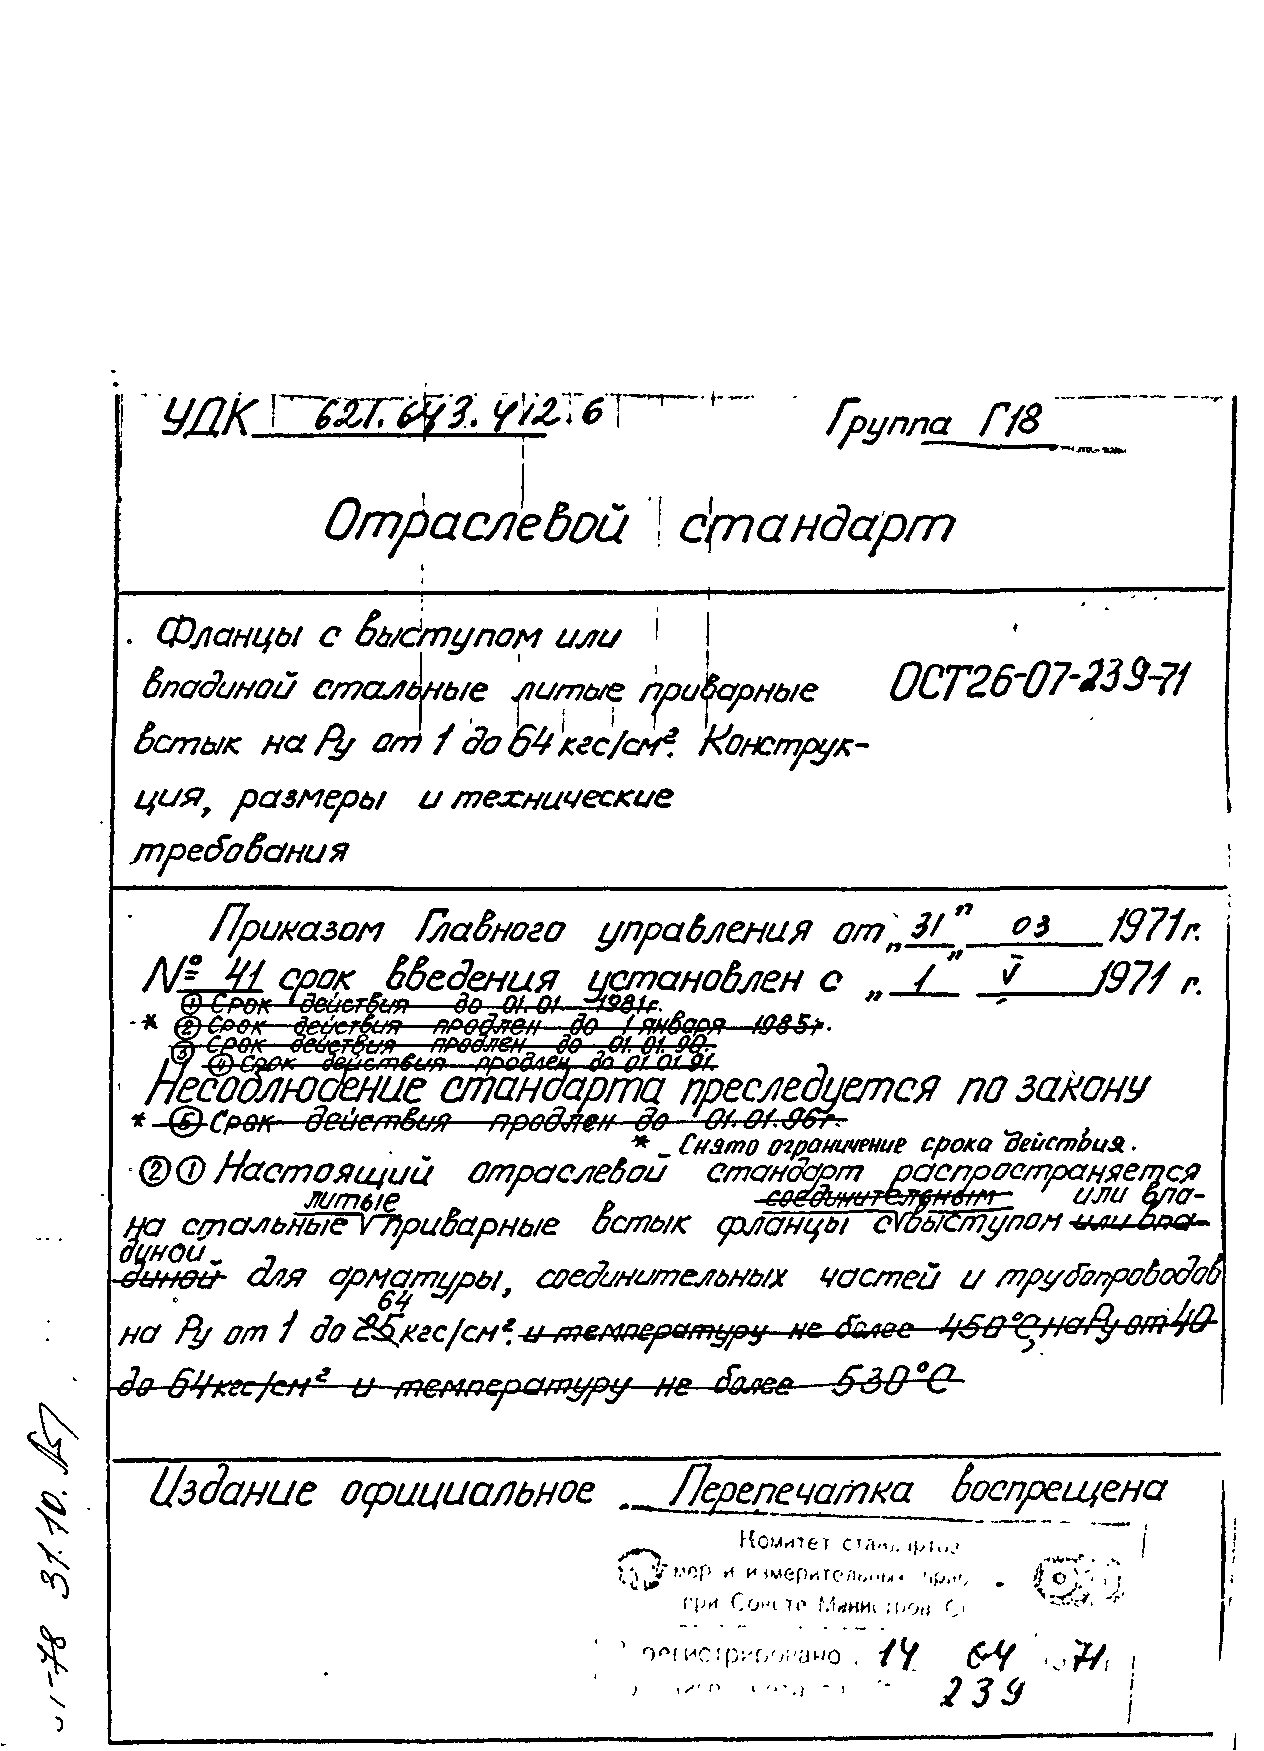 УДК 621.643.412.6 Группа Г18
Отраслевой стандарт
Фланцы с выступом или
впадиной стальные литые приварные
встык на Ру от 1 до 64 кгс/см². Конструк-
ция, размеры и технические
требования
ОСТ26-07-239-71
Приказом Главного управления от „31" 03 1971г.
№ 41 срок введения установлен с „1" V 1971 г.
① Срок действия до 01.01 1981г.
* ② Срок действия продлен до 1 января 1985г.
③ Срок действия продлен до 01.01.90.
④ Срок действия продлен до 01.01.91.
Несоблюдение стандарта преследуется по закону
* ⑤ Срок действия продлен до 01.01.96г.
* - Снято ограничение срока действия.
② ① Настоящий отраслевой стандарт распространяется
литые соединительным или впа-
на стальные приварные встык фланцы с выступом или впа-
диной
диной для арматуры, соединительных частей и трубопроводов
64
на Ру от 1 до 25 кгс/см². и температуру не более 450°С, на Ру от 40
до 64 кгс/см² и температуру не более 530°С
Издание официальное Перепечатка воспрещена
Комитет
мер и измерительных
при Совете Министров
14 04 71
239
31.10.